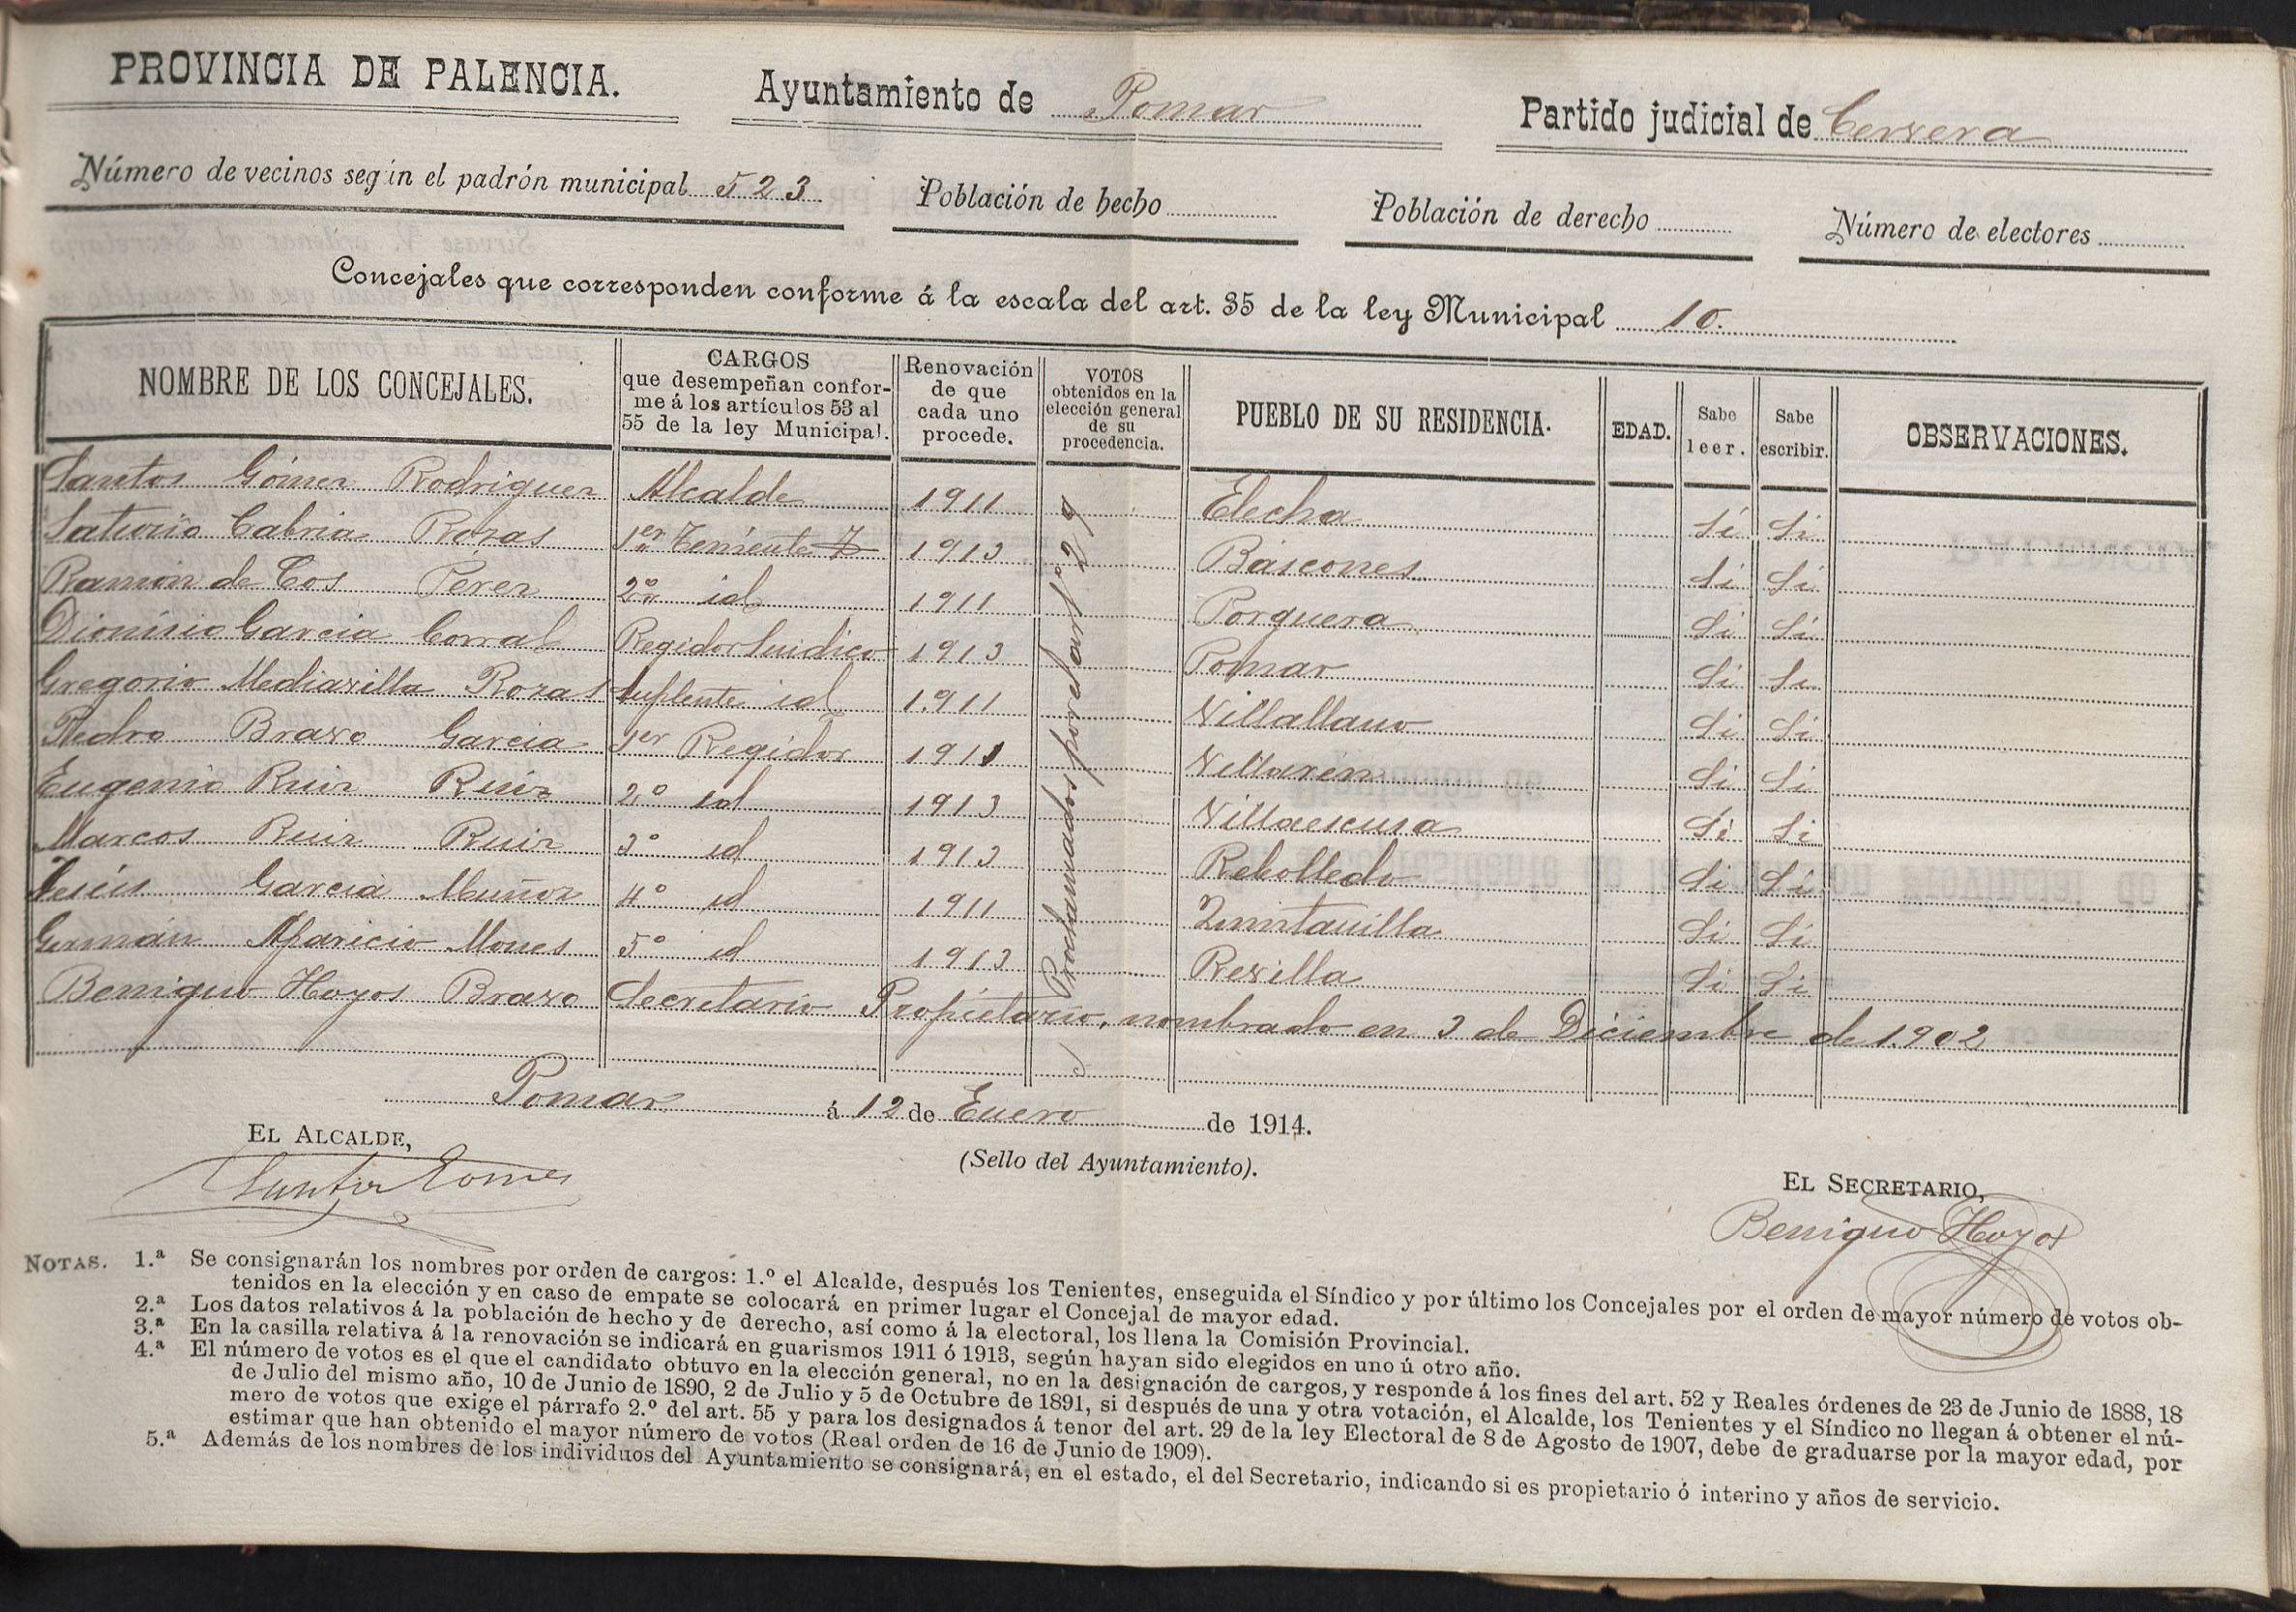 PROVINCIA DE PALENCIA. Ayuntamiento de Pomar Partido judicial de Cervera
Número de vecinos según el padrón municipal 523 Población de hecho Población de derecho Número de electores
Concejales que corresponden conforme á la escala del art. 35 de la ley Municipal 10.
NOMBRE DE LOS CONCEJALES. CARGOS que desempeñan conforme á los artículos 53 al 55 de la ley Municipal. Renovación de que cada uno procede. VOTOS obtenidos en la elección general de su procedencia. PUEBLO DE SU RESIDENCIA. EDAD. Sabe leer. Sabe escribir. OBSERVACIONES.
Santos Gómez Rodriguez Alcalde 1911 Elecha Si Si
Saturio Cabria Rozas 1er Teniente 1913 Báscones Si Si
Ramón de Cos Perez 2º id 1911 Porquera Si Si
Dionisio Garcia Corral Regidor Sindico 1913 Pomar Si Si
Gregorio Mediavilla Rozas Suplente id 1911 Villallano Si Si
Pedro Bravo Garcia 1er Regidor 1911 Villarén Si Si
Eugenio Ruiz Ruiz 2º id 1913 Villaescusa Si Si
Marcos Ruiz Ruiz 3º id 1913 Rebolledo Si Si
Jesús Garcia Muñoz 4º id 1911 Quintanilla Si Si
Germán Aparicio Mones 5º id 1913 Revilla Si Si
Proclamados por el art º 29
Benigno Hoyos Bravo Secretario Propietario, nombrado en 3 de Diciembre de 1.902
Pomar á 12 de Enero de 1914.
EL ALCALDE,
Santos Gomez
(Sello del Ayuntamiento).
EL SECRETARIO,
Benigno Hoyos
NOTAS. 1.ª Se consignarán los nombres por orden de cargos: 1.º el Alcalde, después los Tenientes, enseguida el Síndico y por último los Concejales por el orden de mayor número de votos ob-
tenidos en la elección y en caso de empate se colocará en primer lugar el Concejal de mayor edad.
2.ª Los datos relativos á la población de hecho y de derecho, así como á la electoral, los llena la Comisión Provincial.
3.ª En la casilla relativa á la renovación se indicará en guarismos 1911 ó 1913, según hayan sido elegidos en uno ú otro año.
4.ª El número de votos es el que el candidato obtuvo en la elección general, no en la designación de cargos, y responde á los fines del art. 52 y Reales órdenes de 23 de Junio de 1888, 18
de Julio del mismo año, 10 de Junio de 1890, 2 de Julio y 5 de Octubre de 1891, si después de una y otra votación, el Alcalde, los Tenientes y el Síndico no llegan á obtener el nú-
mero de votos que exige el párrafo 2.º del art. 55 y para los designados á tenor del art. 29 de la ley Electoral de 8 de Agosto de 1907, debe de graduarse por la mayor edad, por
estimar que han obtenido el mayor número de votos (Real orden de 16 de Junio de 1909).
5.ª Además de los nombres de los individuos del Ayuntamiento se consignará, en el estado, el del Secretario, indicando si es propietario ó interino y años de servicio.